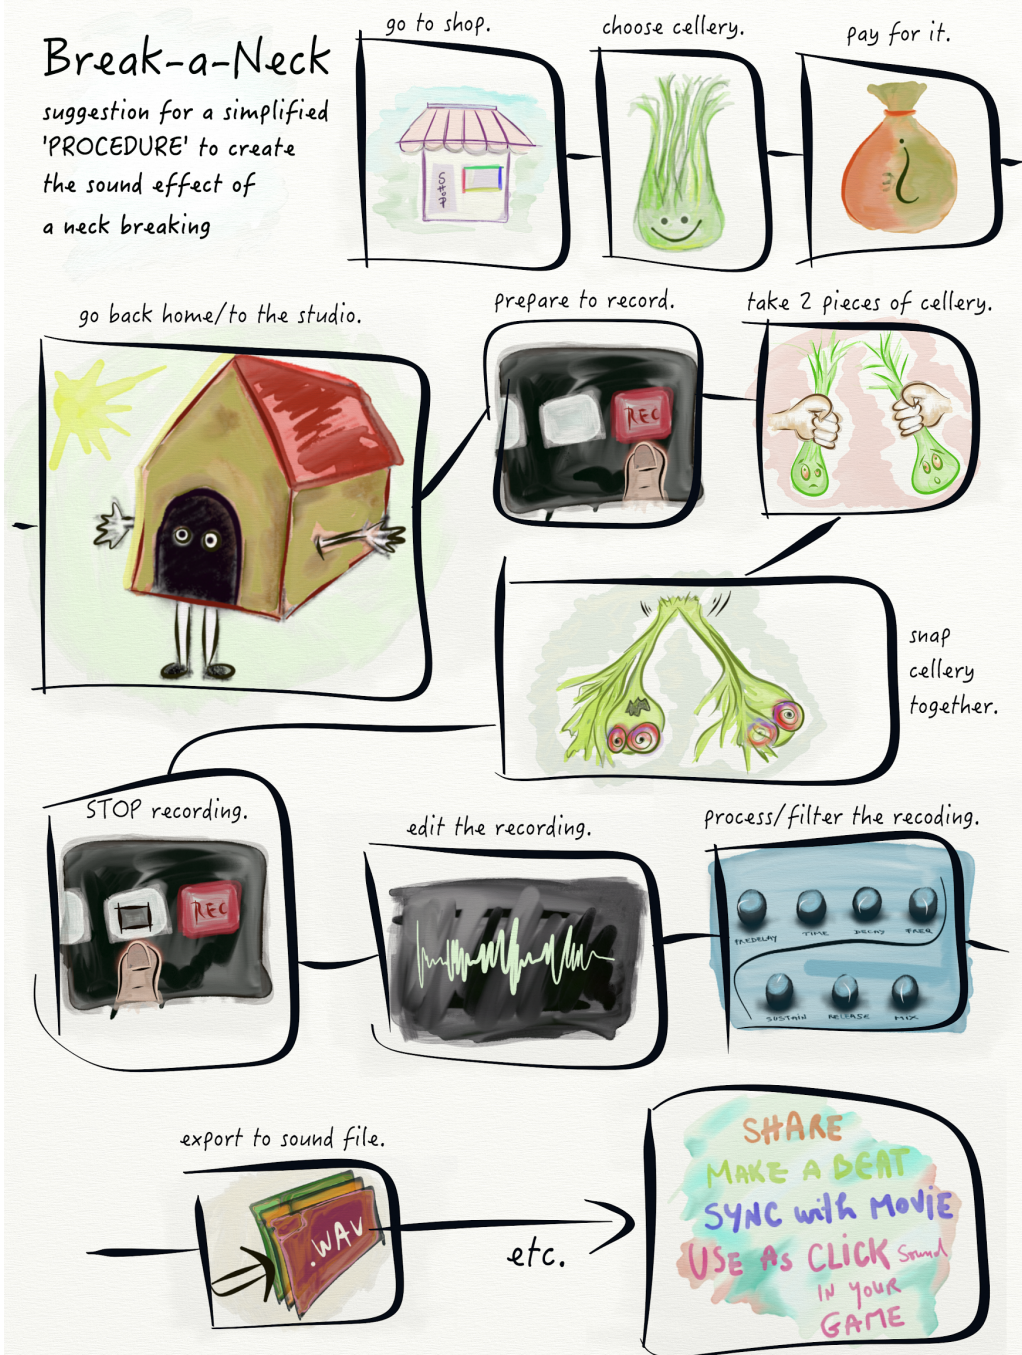 Break-a-Neck
suggestion for a simplified
'PROCEDURE' to create
the sound effect of
a neck breaking
go to shop.
SHOP
choose cellery.
pay for it.
go back home/to the studio.
prepare to record.
REC
take 2 pieces of cellery.
snap
cellery
together.
STOP recording.
REC
edit the recording.
process/filter the recoding.
PREDELAY TIME DECAY FREQ
SUSTAIN RELEASE MIX
export to sound file.
.WAV
etc.
SHARE
MAKE A BEAT
SYNC with MOVIE
USE AS CLICK Sound
IN YOUR
GAME